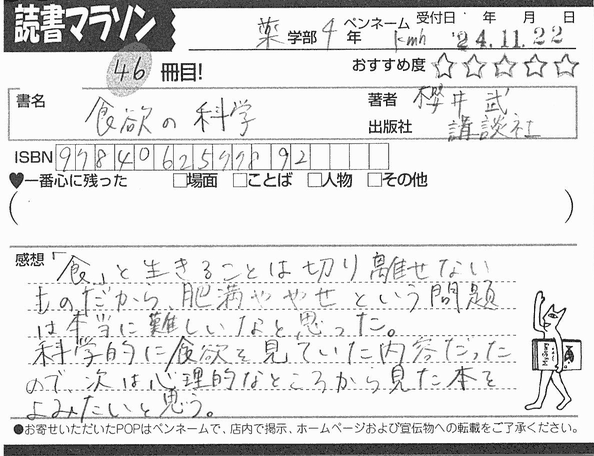 読書マラソン
薬学部4年 ペンネーム kmh 受付日 '24.11.22 年 月 日
46冊目! おすすめ度☆☆☆☆☆
書名 食欲の科学 著者 櫻井武
出版社 講談社
ISBN 9784062577892
♥一番心に残った □場面 □ことば □人物 □その他
( )
感想 「食」と生きることは切り離せない
ものだから、肥満ややせという問題
は本当に難しいなと思った。
科学的に食欲を見ていた内容だった
ので、次は心理的なところから見た本を
よみたいと思う。
●お寄せいただいたPOPはペンネームで、店内で掲示、ホームページおよび宣伝物への転載をご了承ください。